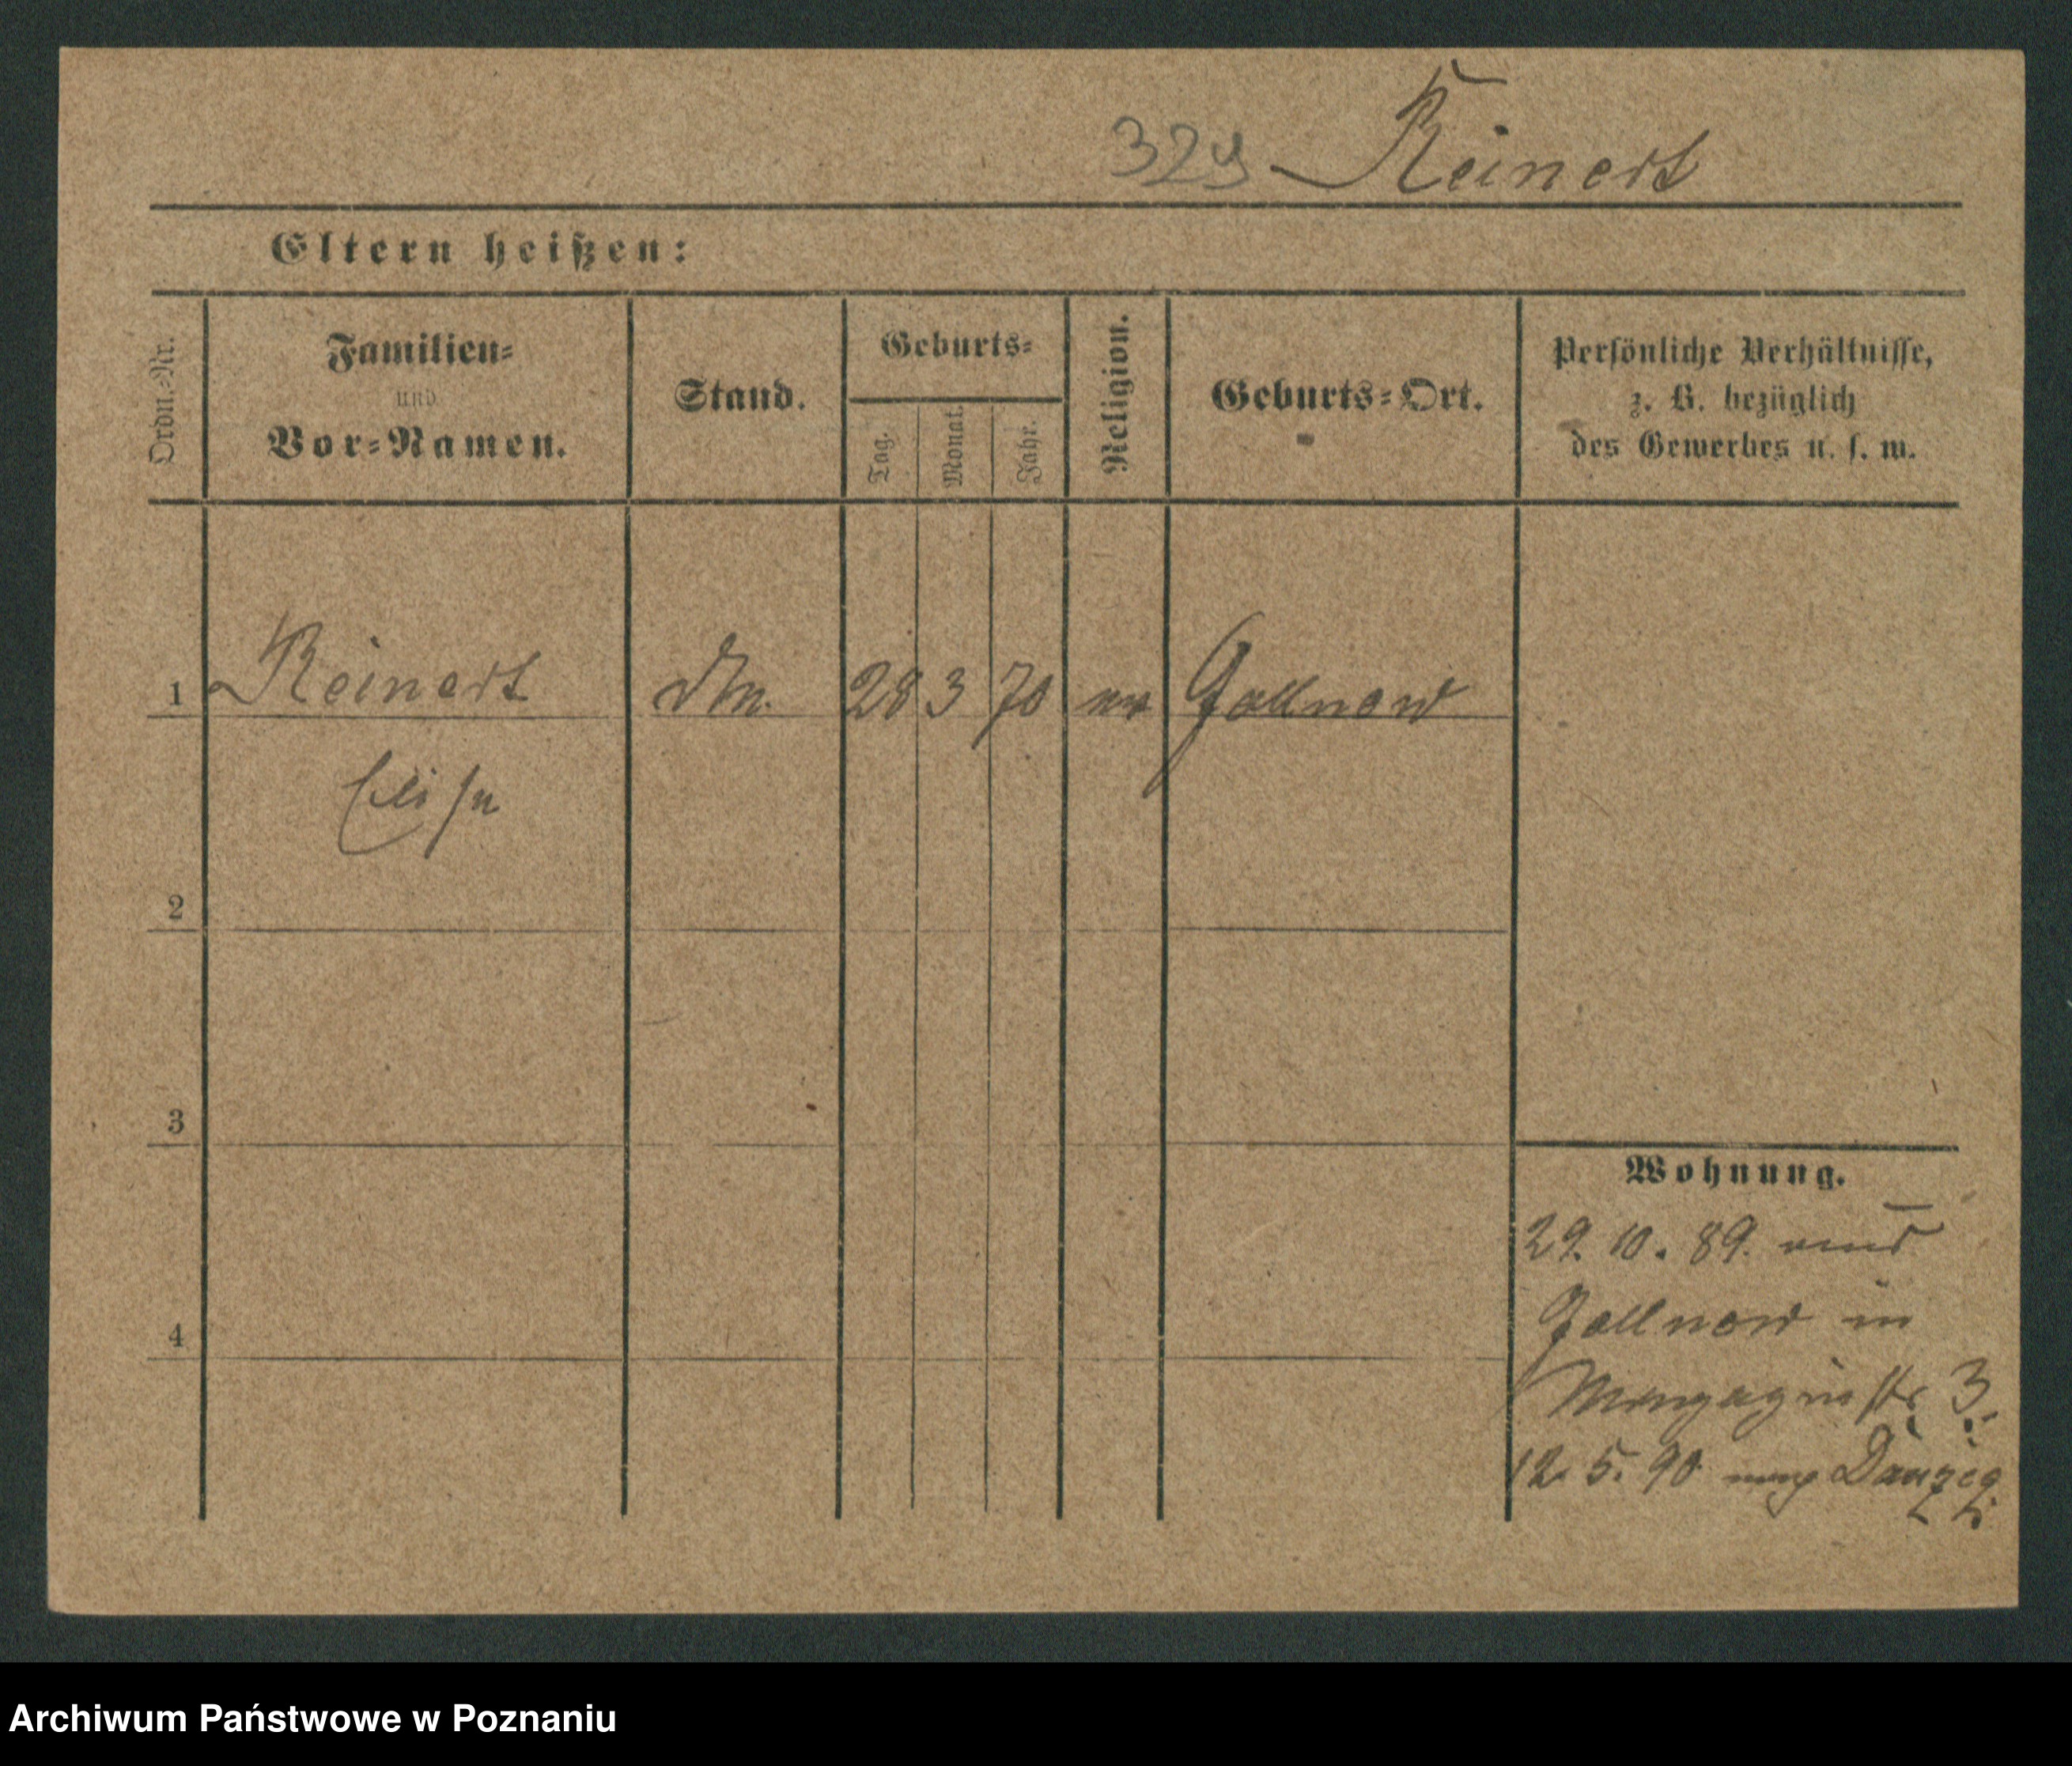 329 Reinert
Eltern heißen:
Ordn.-Nr.
Familien-
und
Vor-Namen.
Stand.
Geburts-
Tag.
Monat.
Jahr.
Religion.
Geburts-Ort.
Persönliche Verhältnisse,
z. B. bezüglich
des Gewerbes u. s. w.
1 Reinert 28 3 70 ev Gollnow
Elise
2
3
4
Wohnung.
29. 10. 89. aus
Gollnow in
3.
12. 5. 90 nach Danzig
Archiwum Państwowe w Poznaniu